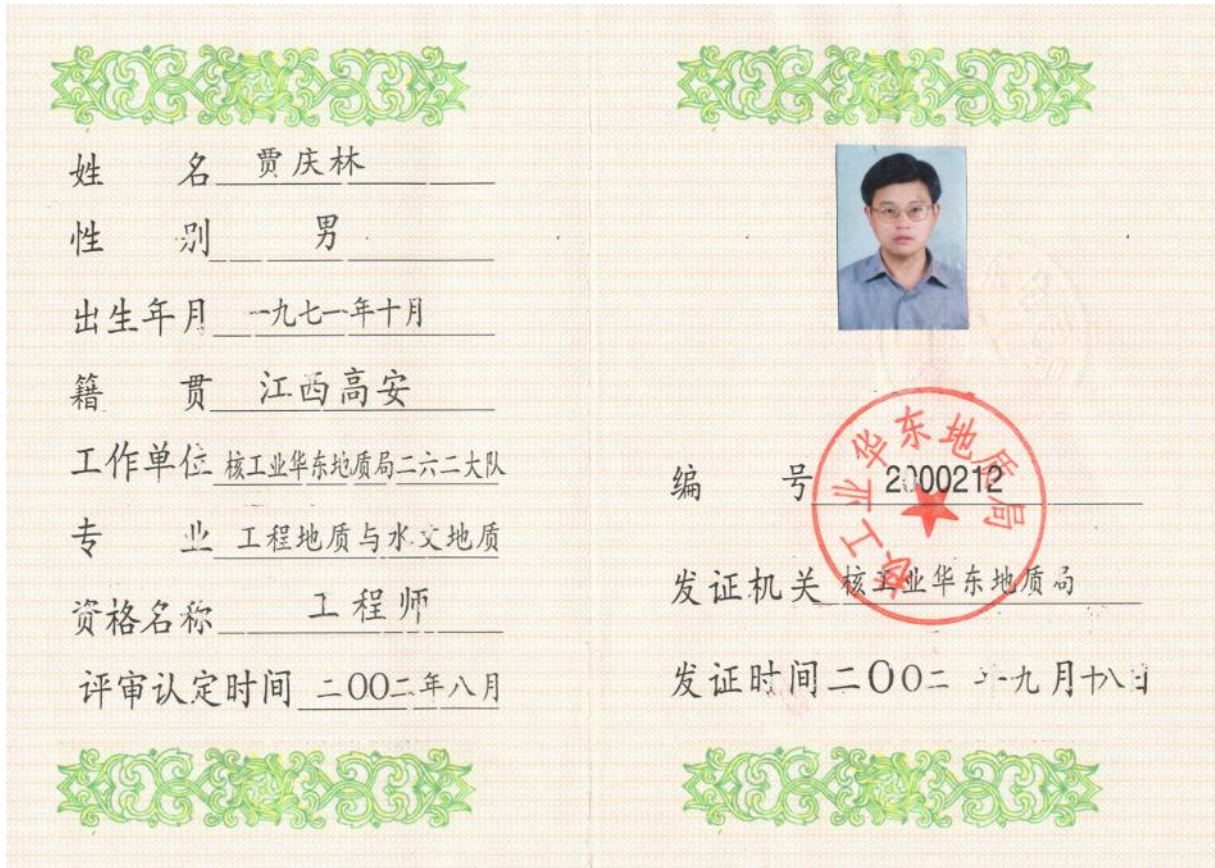 姓 名 贾庆林
性 别 男
出生年月 一九七一年十月
籍 贯 江西高安
工作单位 核工业华东地质局二六二大队
专 业 工程地质与水文地质
资格名称 工程师
评审认定时间 二〇〇二年八月
核工业华东地质局
编 号 2000212
发证机关 核工业华东地质局
发证时间 二〇〇二年九月十八日